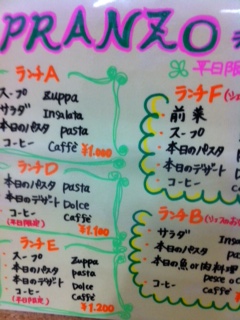 PRANZO
平日限
ランチA
スープ Zuppa
サラダ Insalata
本日のパスタ pasta
コーヒー Caffè
¥1.000
ランチD
本日のパスタ pasta
本日のデザート Dolce
コーヒー Caffè
(平日限定) ¥1.100
ランチE
スープ Zuppa
本日のパスタ pasta
本日のデザート Dolce
コーヒー Caffè
(平日限定) ¥1.200
ランチF
前菜
スープ
本日のパスタ
本日のデザート
コーヒー
ランチB
サラダ Insa
本日のパスタ pas
本日の魚or肉料理
pesce o C
コーヒー Caffè